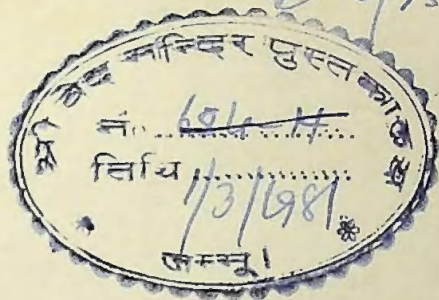 श्री वेद मन्दिर पुस्तकालय
नं. ..................
तिथि 1/3/1981
जम्मू।